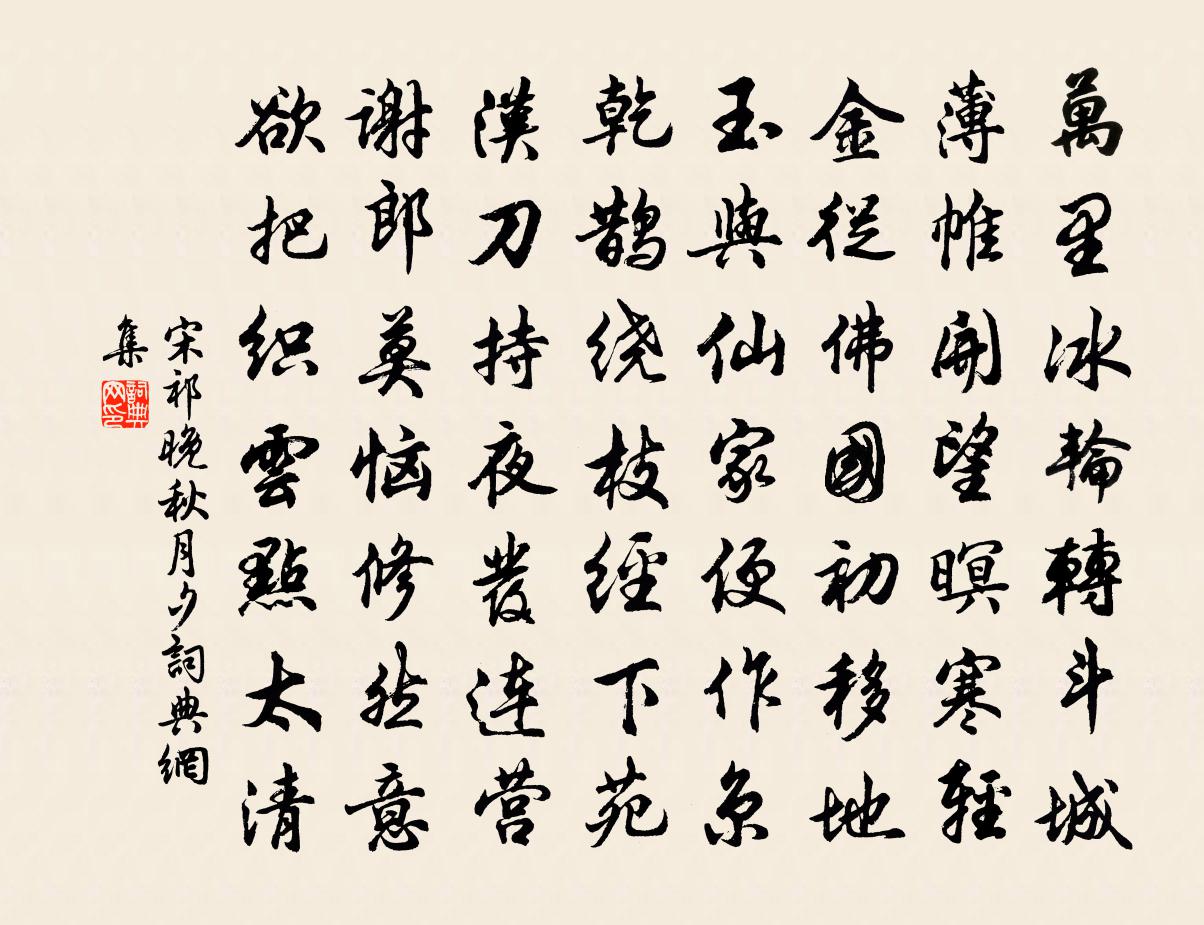 萬里冰輪轉斗城
薄帷開望暝寒輕
金從佛國初移地
玉與仙家便作京
乾鹊绕枝經下苑
漢刀持夜發连营
谢郎莫恼修然意
欲把织雲點太清
宋祁晚秋月夕詞典網
集
詞典网印